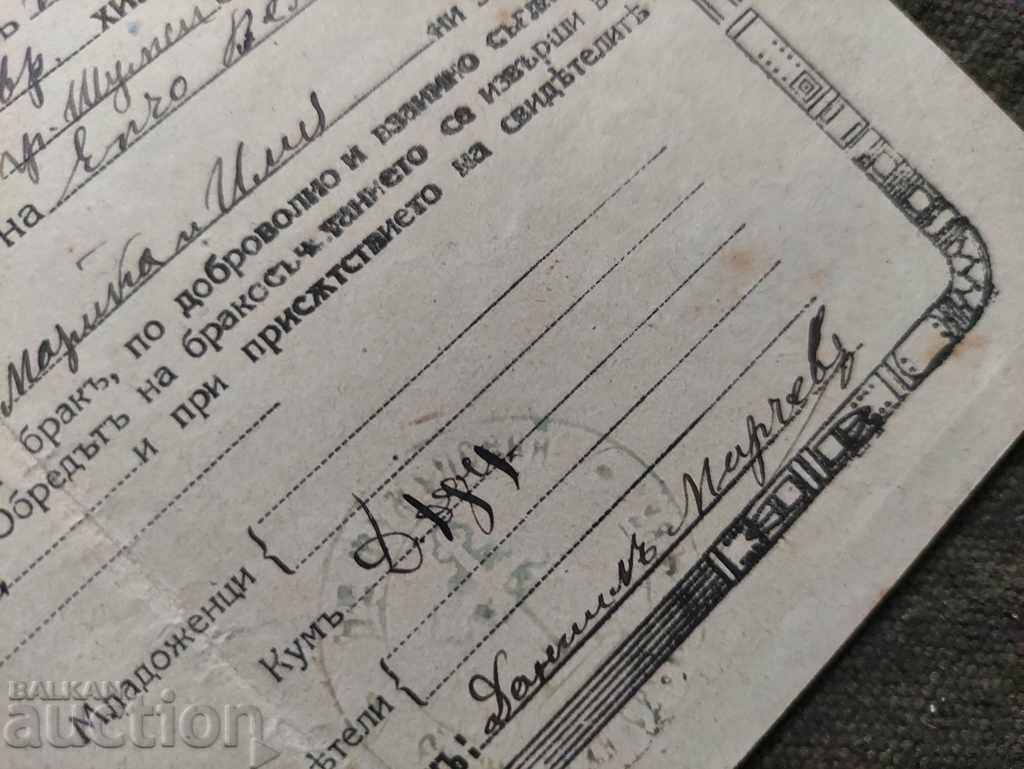 вр.
гр. Шумен
на Енчо
Марийка и Илия
бракъ, по доброволно и взаимно
Обредътъ на бракосъчетанието се извърши
и при присѫтствието на свидѣтелитѣ
Младоженци {
Кумъ
ѣтели {
ъ: Данаилъ Марчевъ
BALKAN
auction